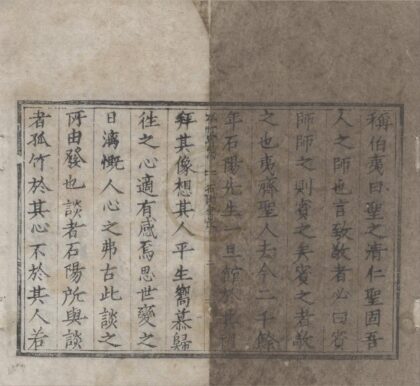 稱伯夷曰聖之清仁聖固吾
人之師也言致敬者必曰賓
師師之則賓之矣賓之者敬
之也夷齊聖人去今二千餘
年石陽先生一旦館
拜其像想其人平生嚮慕歸
往之心適有感焉思世變之
日漓慨人心之弗古此談之
所由發也談者石陽所與談
者孤竹於其心不於其人若